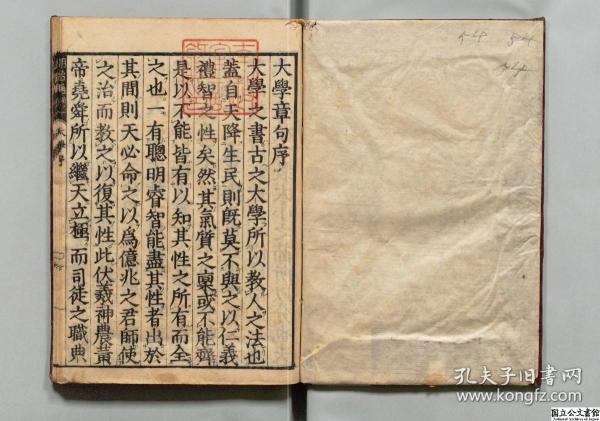 大學章句序
大學之書古之大學所以教人之法也
蓋自天降生民則既莫不與之以仁義
禮智之性矣然其氣質之稟或不能齊
是以不能皆有以知其性之所有而全
之也一有聰明睿智能盡其性者出於
其間則天必命之以爲億兆之君師使
之治而教之以復其性此伏羲神農黃
帝堯舜所以繼天立極而司徒之職典
孔夫子旧书网
www.kongfz.com
国立公文書館
National Archives of Japan